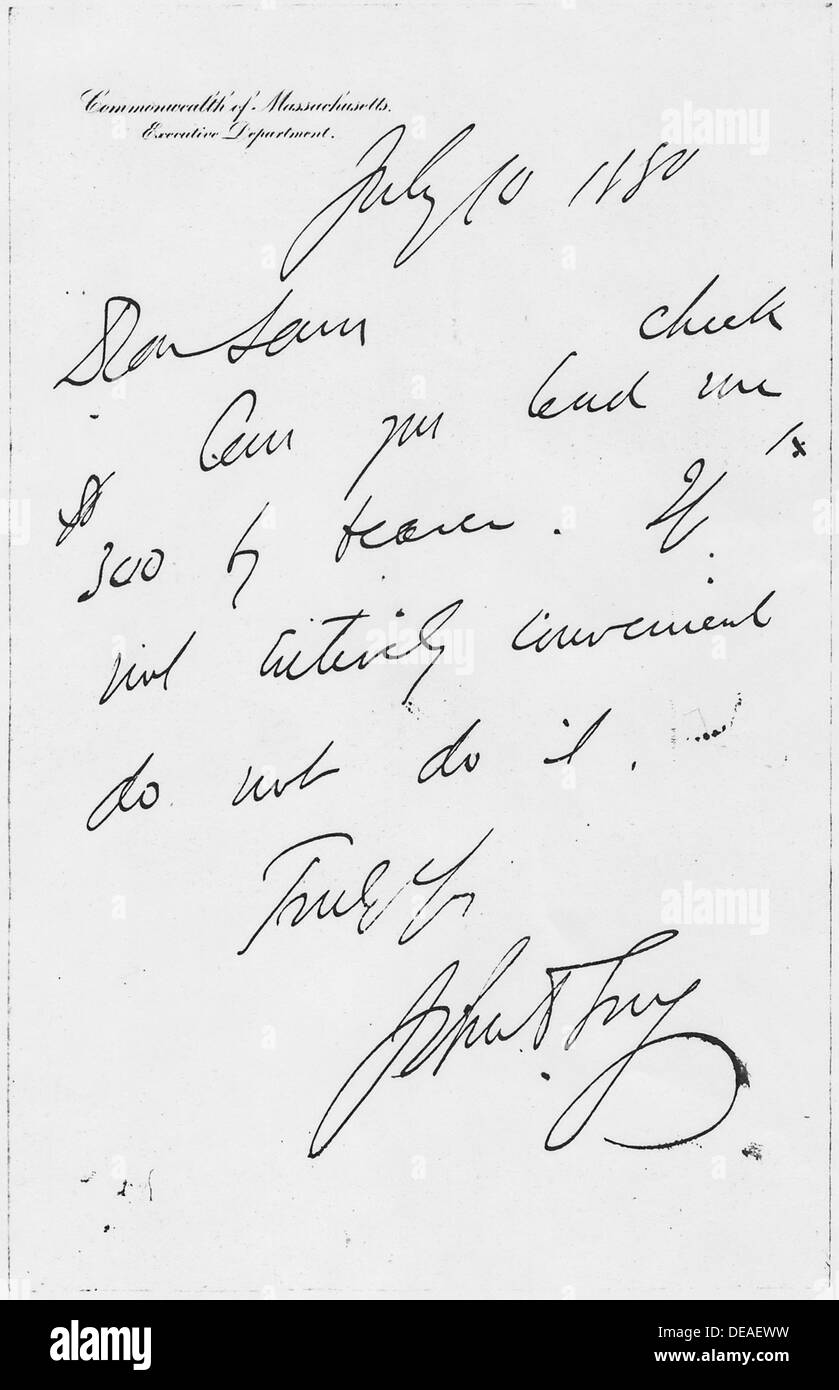 Commonwealth of Massachusetts.
Executive Department.
July 10 1880
Dear Sam
check
Can you lend me
$
300 by bearer. If
not entirely convenient
do not do it.
Truly Yrs
John D Long
alamy
alamy
alamy
alamy
Image ID: DEAEWW
www.alamy.com